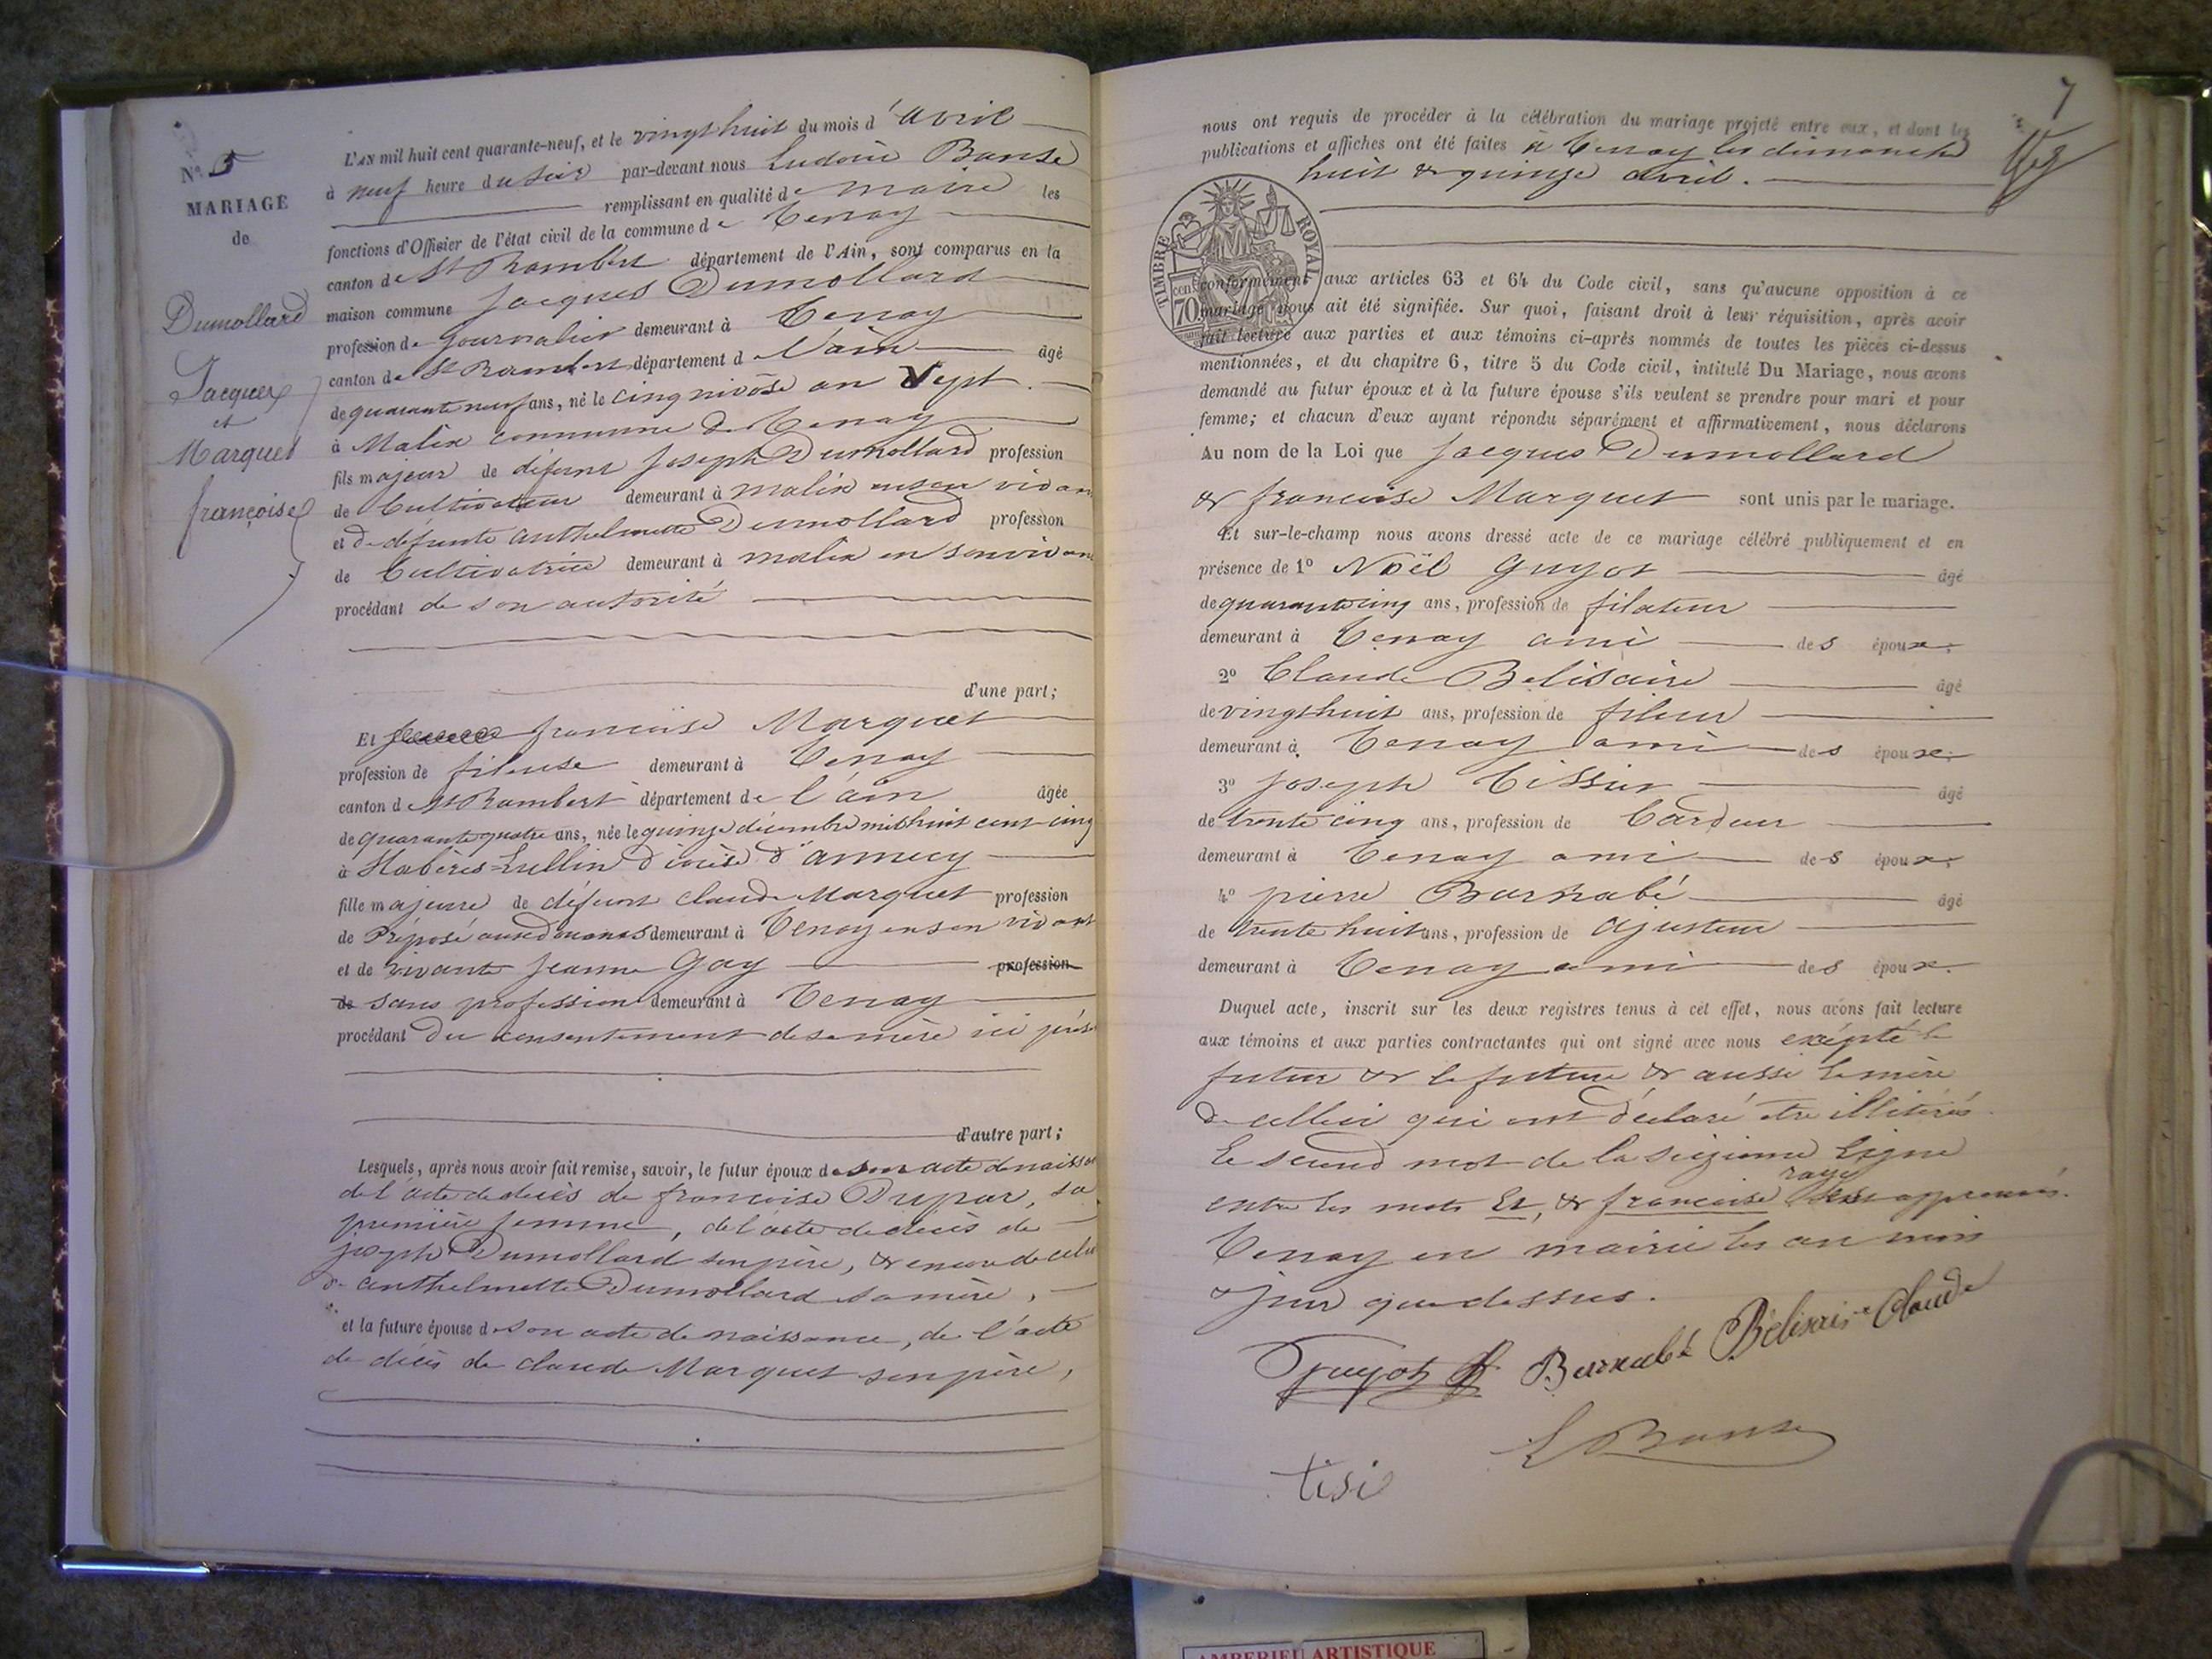 N° 5
MARIAGE
de
Dumollard
Jacques
et
Marquet
françoise
L'AN mil huit cent quarante-neuf, et le vingt huit du mois d'avril
à neuf heure du soir par-devant nous Ludovic Banse
remplissant en qualité de maire les
fonctions d'Offisier de l'état civil de la commune de Tenay
canton de St Rambert département de l'Ain, sont comparus en la
maison commune Jacques Dumollard
profession de journalier demeurant à Tenay
canton de St Rambert département d l'ain âgé
de quarante neuf ans, né le cinq nivôse an sept.
à Malix commune de Tenay
fils majeur de défunt Joseph Dumollard profession
de Cultivateur demeurant à malix en son vivant
et de défunte anthelmette Dumollard profession
de Cultivatrice demeurant à malix en son vivant
procédant de son autorité
d'une part;
Et françoise Marquet
profession de fileuse demeurant à Tenay
canton d St Rambert département de l'ain âgée
de quarante quatre ans, née le quinze décembre mil huit cent cinq
à Habères-Lullin diocèse d'annecy
fille majeure de défunt claude Marquet profession
de Préposé aux douanes demeurant à Tenay en son vivant
et de vivante Jeanne Gay profession
de sans profession demeurant à Tenay
procédant du consentement de sa mère ici prése
d'autre part;
Lesquels, après nous avoir fait remise, savoir, le futur époux de son acte de naissan
de l'acte de décès de françoise Dupar, sa
première femme, de l'acte de décès de
joseph Dumollard son père, & encore de celui
d. anthelmette Dumollard sa mère,
et la future épouse de son acte de naissance, de l'acte
de décès de claude Marquet son père,
7
nous ont requis de procéder à la célébration du mariage projeté entre eux, et dont les
publications et affiches ont été faites à Tenay les dimanches
huit & quinze avril.
TIMBRE ROYAL
70 cent
conformément aux articles 63 et 64 du Code civil, sans qu'aucune opposition à ce
mariage nous ait été signifiée. Sur quoi, faisant droit à leur réquisition, après avoir
fait lecture aux parties et aux témoins ci-après nommés de toutes les pièces ci-dessus
mentionnées, et du chapitre 6, titre 5 du Code civil, intitulé Du Mariage, nous avons
demandé au futur époux et à la future épouse s'ils veulent se prendre pour mari et pour
femme; et chacun d'eux ayant répondu séparément et affirmativement, nous déclarons
Au nom de la Loi que Jacques Dumollard
& françoise Marquet sont unis par le mariage.
Et sur-le-champ nous avons dressé acte de ce mariage célébré publiquement et en
présence de 1° Noël Guyot âgé
de quarante cinq ans, profession de filateur
demeurant à Tenay ami des époux,
2° Claude Belisaire âgé
de vingt huit ans, profession de fileur
demeurant à Tenay ami des époux.
3° Joseph Tissier âgé
de trente cinq ans, profession de Cardeur
demeurant à Tenay ami des époux,
4° pierre Barnabé âgé
de trente huit ans, profession de ajusteur
demeurant à Tenay ami des époux.
Duquel acte, inscrit sur les deux registres tenus à cet effet, nous avons fait lecture
aux témoins et aux parties contractantes qui ont signé avec nous exépté le
futur & la future & aussi la mère
d. celleci qui ont déclaré etre illiterés
Le second mot de la seizieme ligne
entre les mots Et, & francoise rayé est approuvé.
Tenay en mairie les an mois
& jour que dessus.
Guyot Barnabé Bélisaire Claude
L Banse
tisié
AMBERIEU ARTISTIQUE